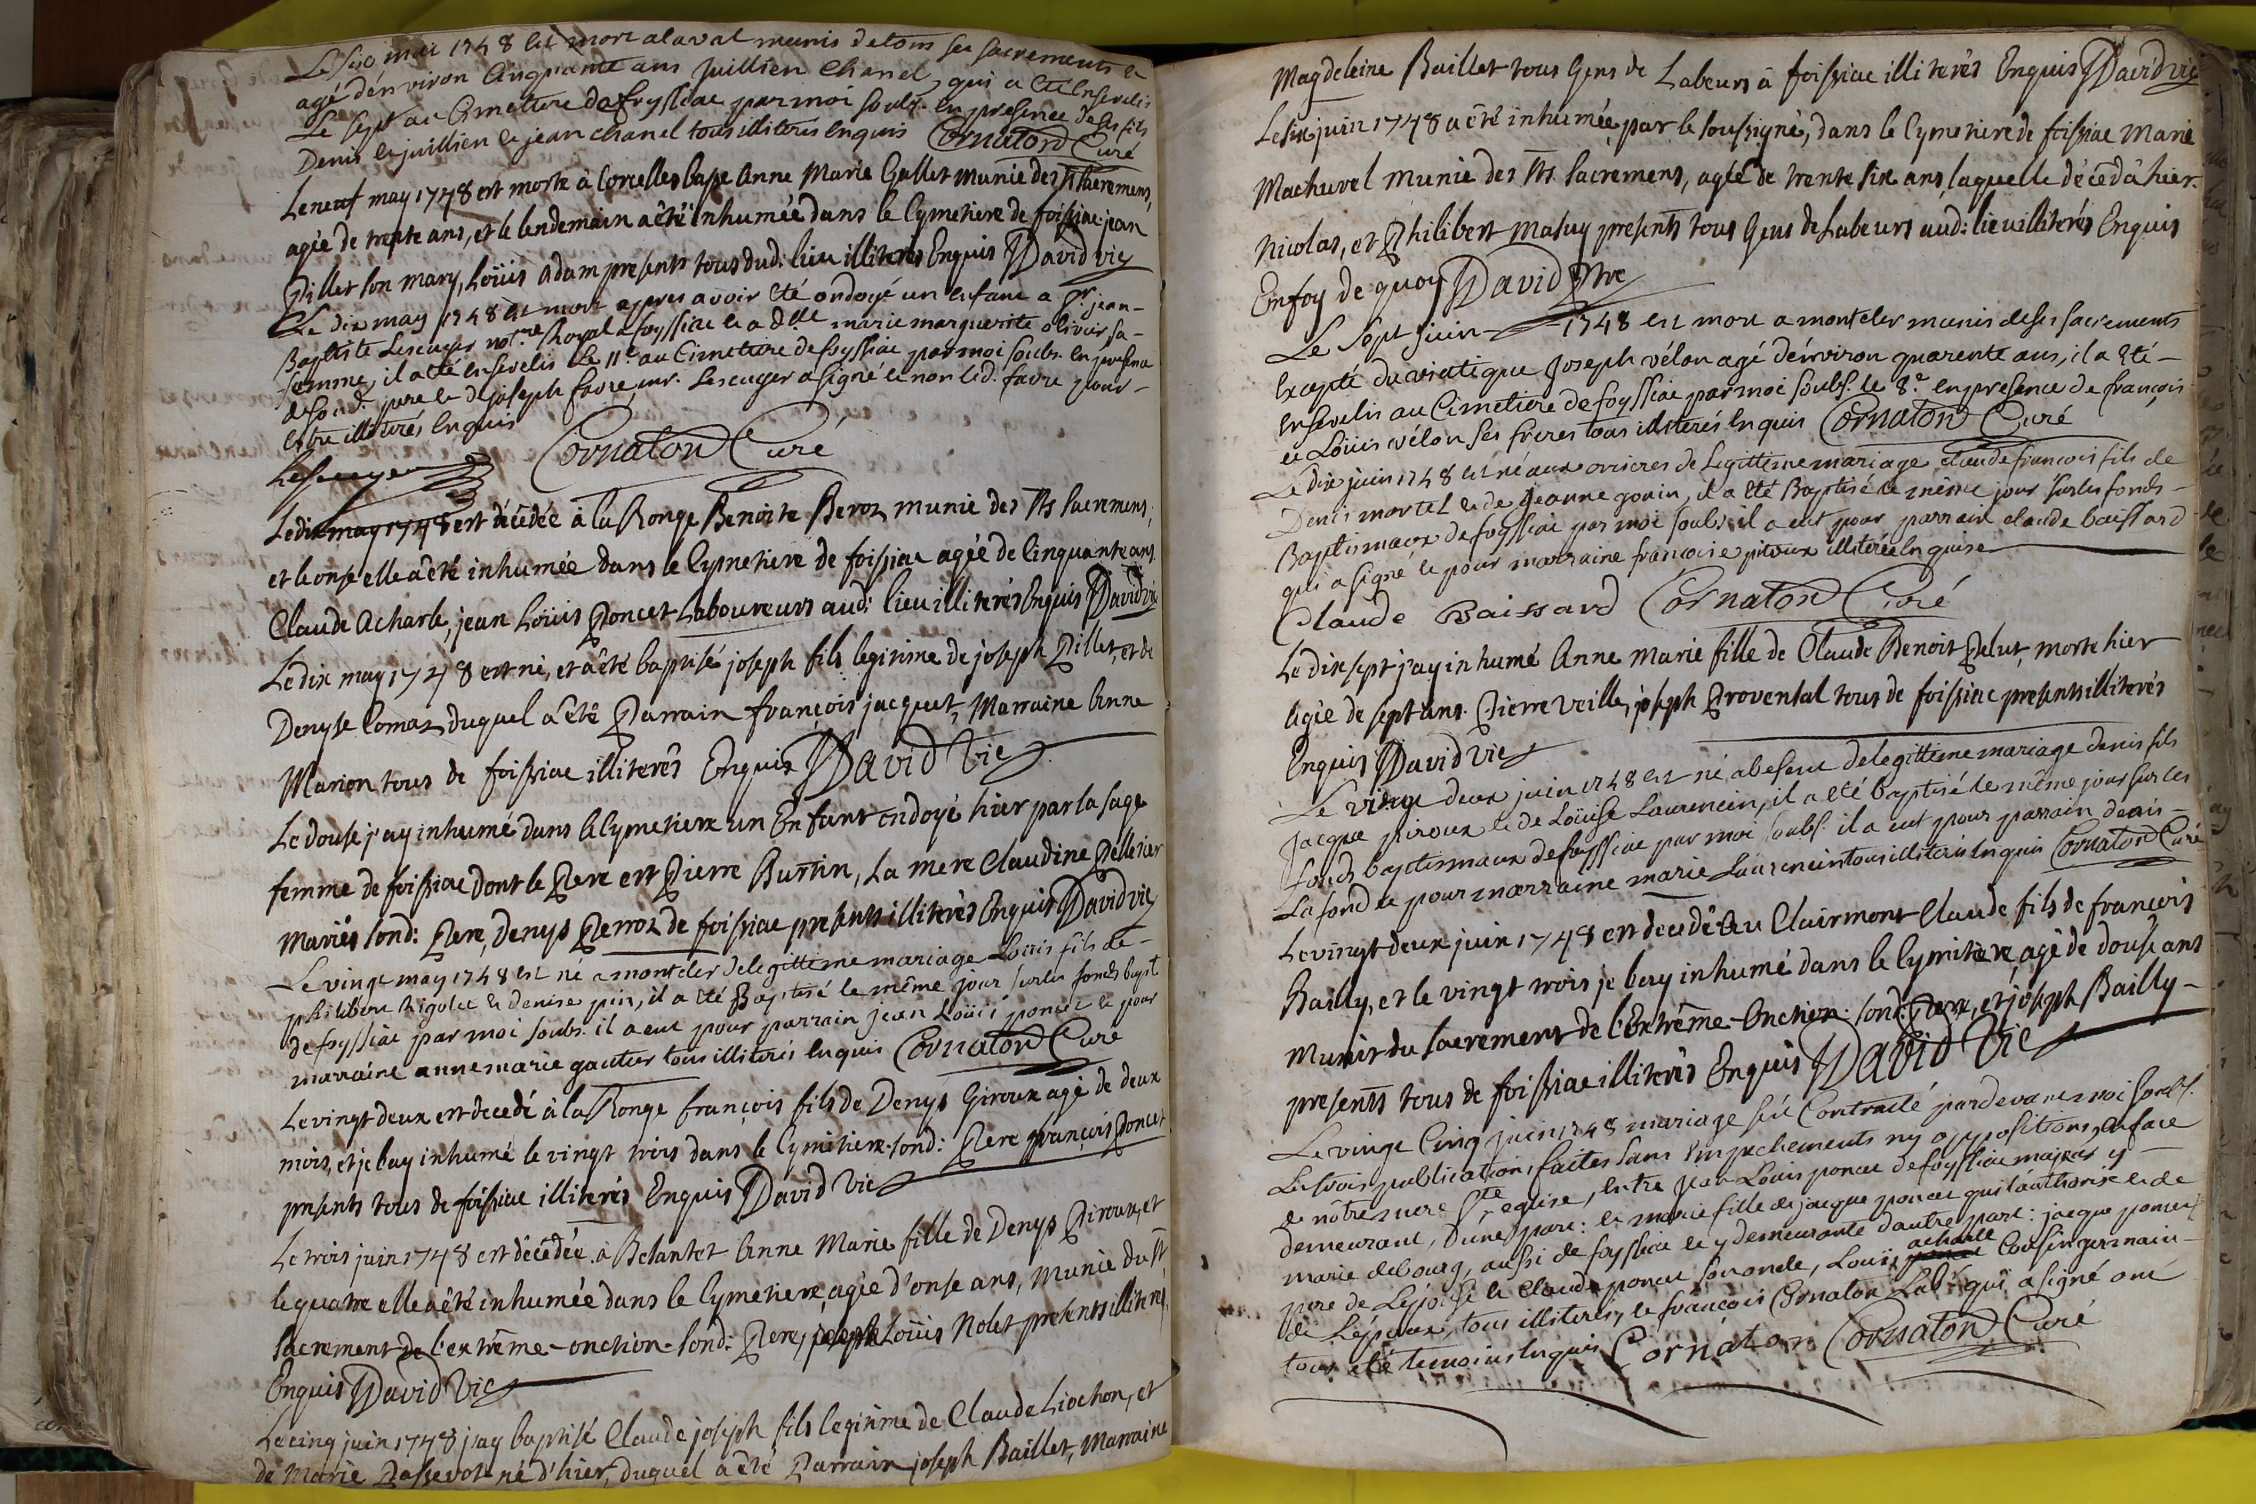 Le six mai 1748 est mort alaval munis detous ses sacrements &
agé d'environ Cinquante ans Juillien Chanel, qui a été Ensevelis
Le sept au Cimetiere de foyssiac par moi soubs. en presence de ses fils
Denis & juillien & jean chanel tous illiterés Enquis Cornaton Curé
Le neuf may 1748 est morte à Corcelles basse Anne Marie Gallet munie des Sts Sacremens,
agée de trente ans, et le lendemain a êté inhumée dans le Cymetiere de foissiac jean
Pillet son mary, Loüis Adam presents tous dud: lieu illiterés Enquis David vic
Le dix may 1748 est mort appres avoir été ondoyé un Enfant a Sr. jean-
Baptiste Lescuyer notre Royal a foyssiac & a dlle marie marguerite olivier sa-
femme, il a été ensevelis Le 11e au Cimetiere de foyssiac par moi soubs. en presence
de son d. pere & de joseph favre, mr. Lescuyer a signé & non led. favre pour-
estre illiteré, Enquis
Lescuyer Cornaton Curé
Le dix may 1748 est décédée à la Ronge Benoite Beroz munie des Sts Sacremens,
et le onse elle a êté inhumée dans le Cymetiere de foissiac agée de Cinquante ans.
Claude Acharle, jean Loüis Poncet Laboureurs aud: lieu illiterés Enquis David vic
Le dix may 1748 est né, et a êté baptisé joseph fils legitime de joseph Pillet, et de
Denyse Comaz duquel a êtê Parrain françois jacquet, Marraine Anne
Marion tous de foissiac illiterés Enquis David Vic
Le douse j'ay inhumé dans le Cymetiere un Enfant ondoyé hier par la sage
femme de foissiac dont le Pere est Pierre Burtin, La mere Claudine Pelletier
Mariés sond: Pere, Denys Perroz de foissiac presents illiterés Enquis David vic
Le vingt may 1748 est né a montcler de legittime mariage Loüis fils de-
philibert Rigolet & denise pin, il a été Baptisé le même jour sur les fonds bapt.
de foyssiac par moi soubs. il a eut pour parrain jean Loüis poncet & pour
marraine anne marie gautier tous illiterés Enquis Cornaton Curé
Le vingt deux est decedé à la Ronge françois fils de Denys Giroux agé de deux
mois, et je l'ay inhumé le vingt trois dans le Cymitiere. sond: Pere françois Poncet
presents tous de foissiac illiterés Enquis David Vic
Le trois juin 1748 est décédée à Belantet Anne Marie fille de Denys Piroux, et
le quatre elle a êté inhumée dans le Cymetiere, agée d'onse ans, Munie du St.
sacrement de l'extrême-onction. sond: Pere, joseph Loüis Nolet presents illiterés,
Enquis David Vic
Le cinq juin 1748 j'ay baptisé Claude joseph fils legitime de Claude Liochon, et
de Marie Passerot né d'hier, duquel a êté Parrain joseph Baillet, Marraine
Magdeleine Baillet tous Gens de Labeurs à foissiac illiterés Enquis David vic
Le six juin 1748 a êté inhumée par le soussigné, dans le Cymetiere de foissiac Marie
Machurel Munie des Sts Sacremens, agée de trente six ans, laquelle décéda hier.
Nicolas, et Philibert Masuy presents tous Gens de Labeurs aud: lieu illiterés Enquis
En foy de quoy David Ptre
Le sept juin - 1748 est mort a montcler munis de ses sacrements
Excepté du viatique Joseph vélon agé d'environ quarente ans, il a été-
Ensevelis au Cimetiere de foyssiac par moi soubs. le 8e en presence de françois
& Loüis vélon ses freres tous illiterés Enquis Cornaton Curé
Le dix juin 1748 est né aux orcieres de Legittime mariage claude françois fils de
Denis mortel & de Jeanne gonin, il a été Baptisé le même jour sur les fonds-
Baptismaux de foyssiac par moi soubs. il a eut pour parrain claude baissard
qui a signé & pour marraine françoise pitoux illiterée Enquise
Claude Baissard Cornaton Curé
Le dix sept j'ay inhumé Anne Marie fille de Claude Benoit Pelut, morte hier
agée de sept ans. Pierre Veille, joseph Provental tous de foissiac presents illiterés
Enquis David Vic
Le vingt deux juin 1748 est né abeseru de legittime mariage denis fils
Jacque piroux & de Loüise Laurencin, il a été baptisé le même jour sur les
fonds baptismaux de foyssiac par moi soubs. il a eut pour parrain denis-
Lafond & pour marraine marie Laurencin tous illiterés Enquis Cornaton Curé
Le vingt deux juin 1748 est decedé au Clairmont Claude fils de françois
Bailly, et le vingt trois je l'ay inhumé dans le Cymitiere, agé de douse ans
Munit du sacrement de l'Extrême-Onction. sond: Pere, et joseph Bailly-
presents tous de foissiac illiterés Enquis David Vic
Le vingt Cinq juin 1748 mariage fut Contracté pardevant moi soubs.
Les trois publications faites sans Empechements ny oppositions, En face
de nôtre mere Ste eglise, Entre Jean Louis poncet de foyssiac majeur y-
demeurant, d'une part: & marie fille de jacque poncet qui l'authorise & de
marie debourg, aussi de foyssiac & y demeurante d'autre part: jacque poncet
pere de L'épouse & Claude poncet son oncle, Louis acharle Cousin germain-
de L'époux, tous illiterés, & françois Cornaton Labr. qui a signé ont
tous eté temoins Enquis Cornaton Cornaton Curé